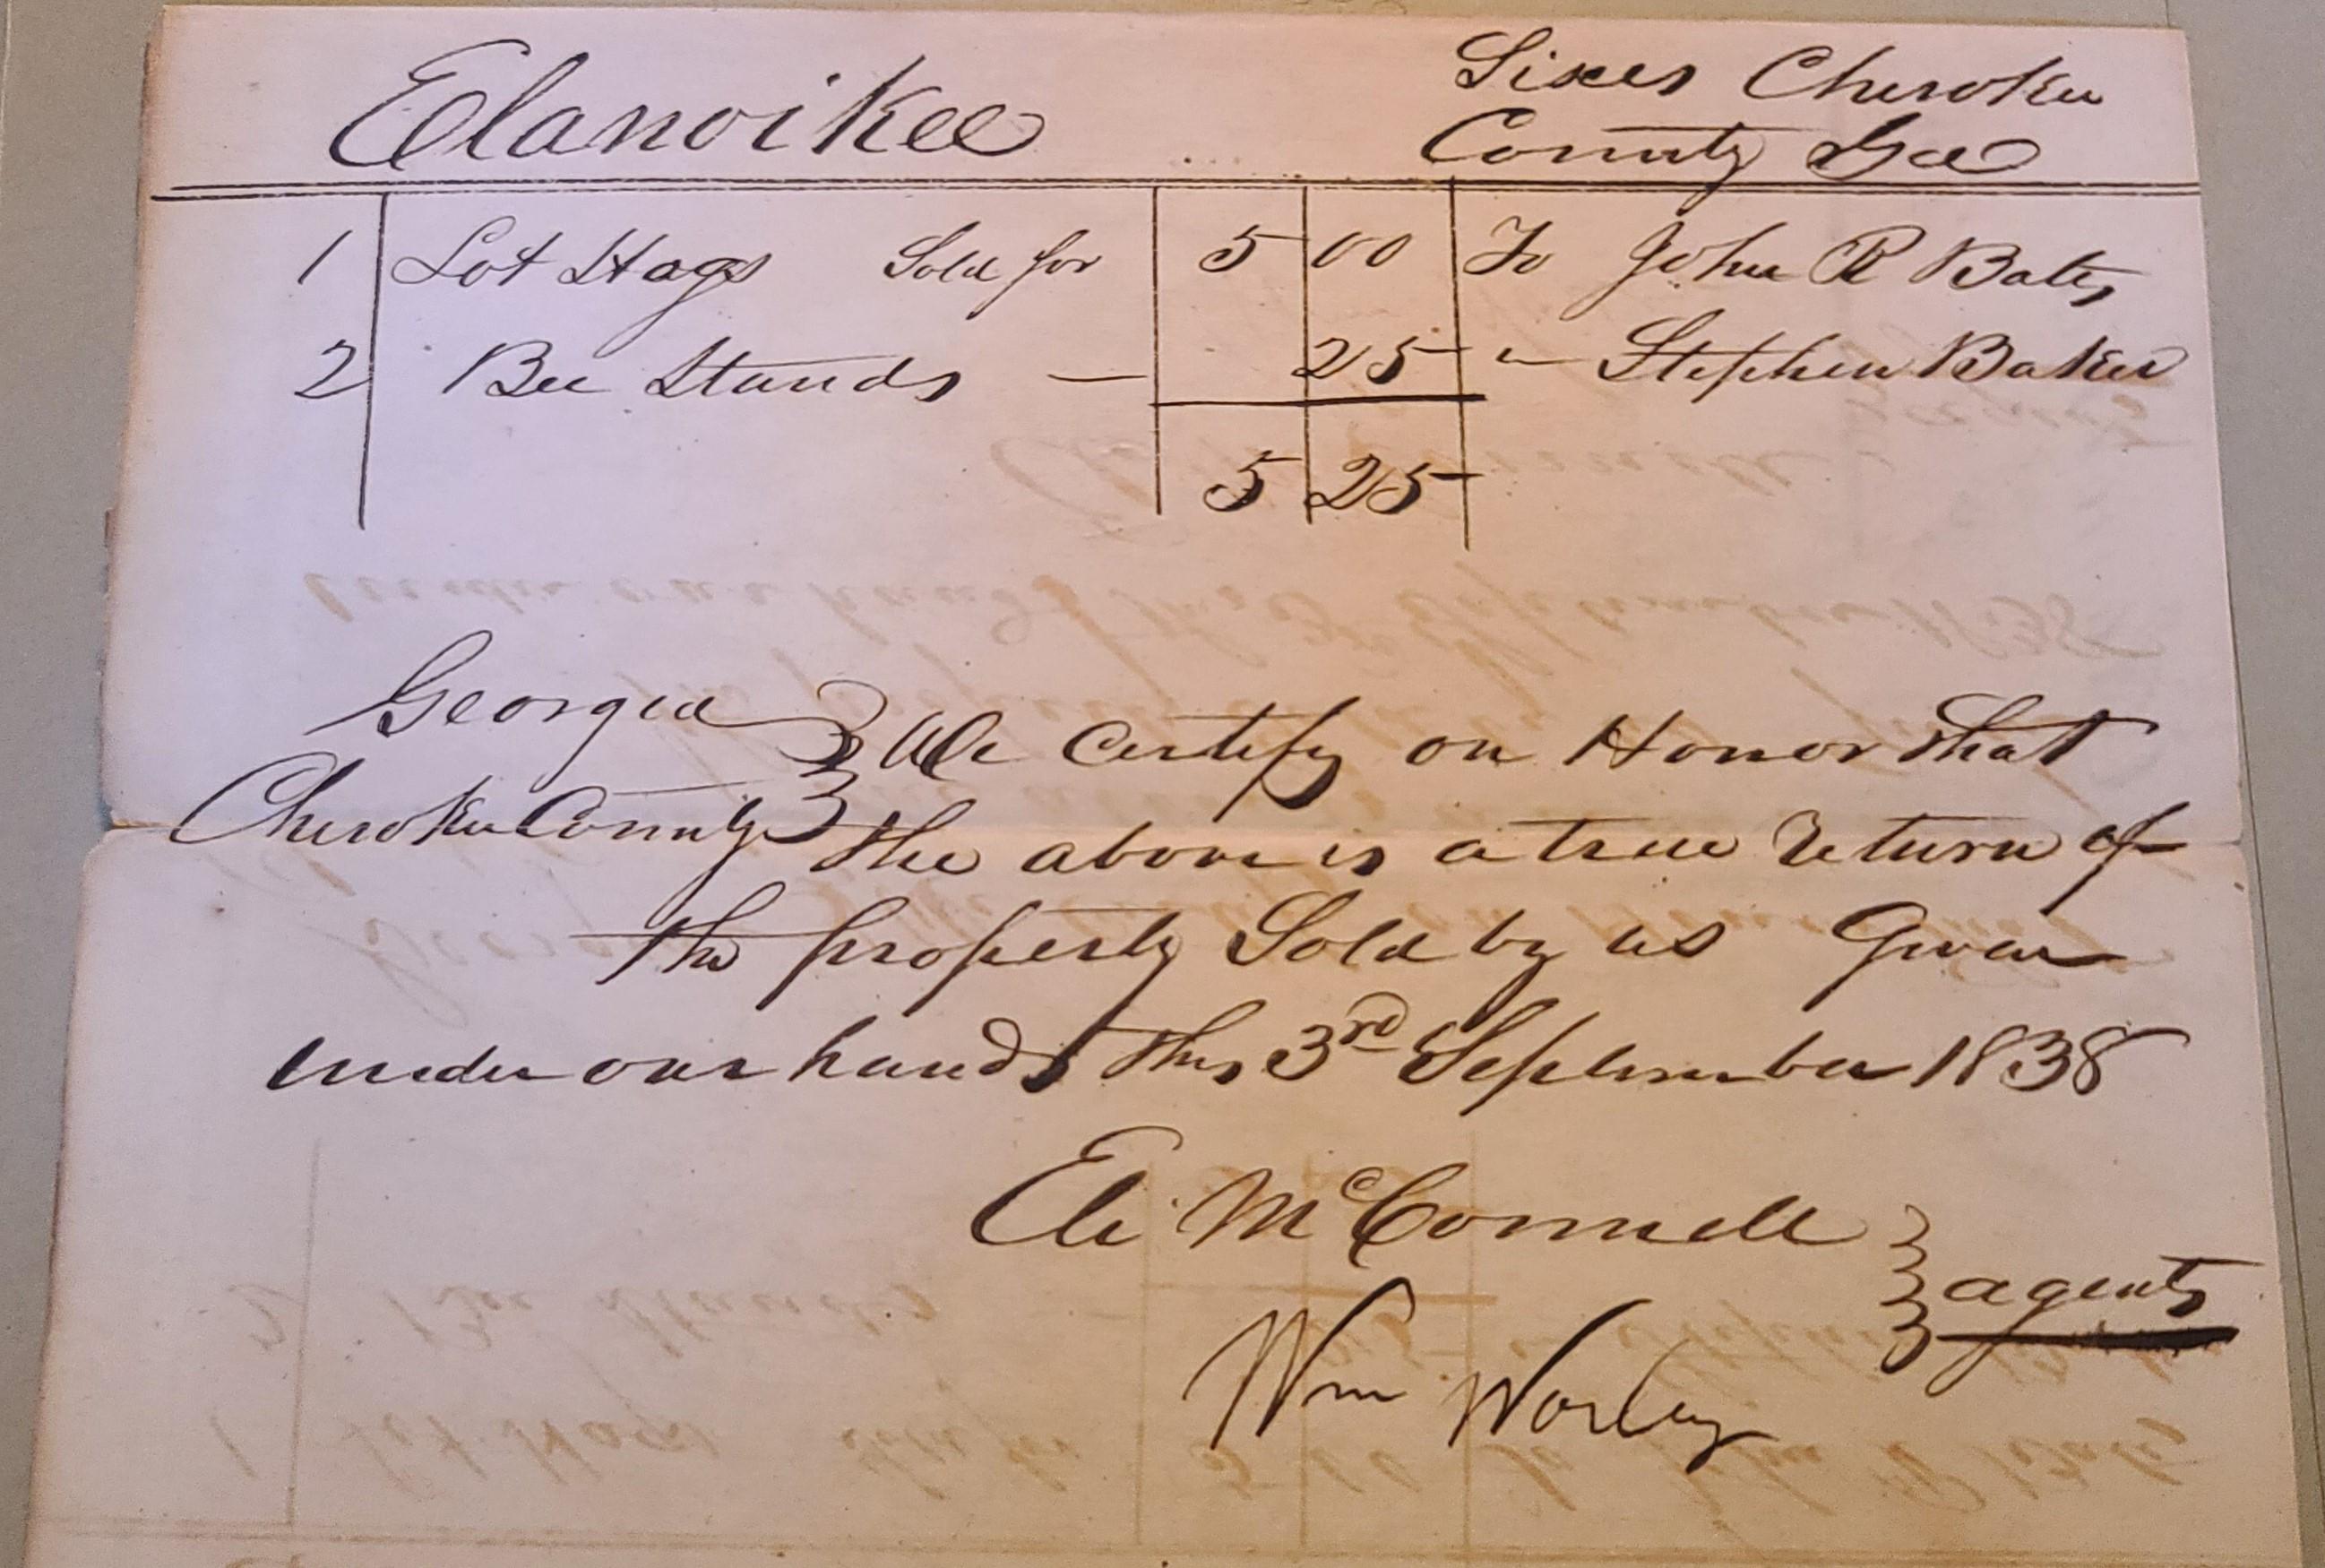 Elanoikee
Sixes Cherokee
County Gee
1 Lot Hogs Sold for 5 00 To John R Bates
2 Bee Stands — 25 " Stephen Baker
5 25
Georgia
Cherokee County
We Certify on Honor that
the above is a true Return of
the property Sold by us Given
under our hands this 3rd September 1838
Eli McConnell
Wm Worley
agents